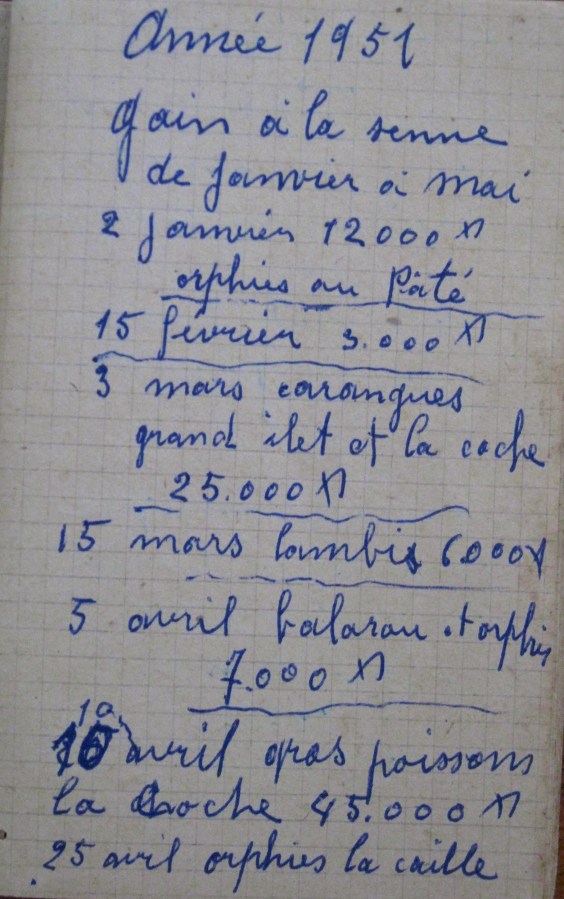 Année 1951
gain à la senne
de Janvier à mai
2 Janvier 12000 Xl
orphies au Pâté
15 février 3.000 Xl
3 mars carangues
grand ilet et la coche
25.000 Xl
15 mars lambis 6000 Xl
5 avril balarau et orphis
7.000 Xl
10 avril gros poissons
la Coche 45.000 Xl
25 avril orphies la caille